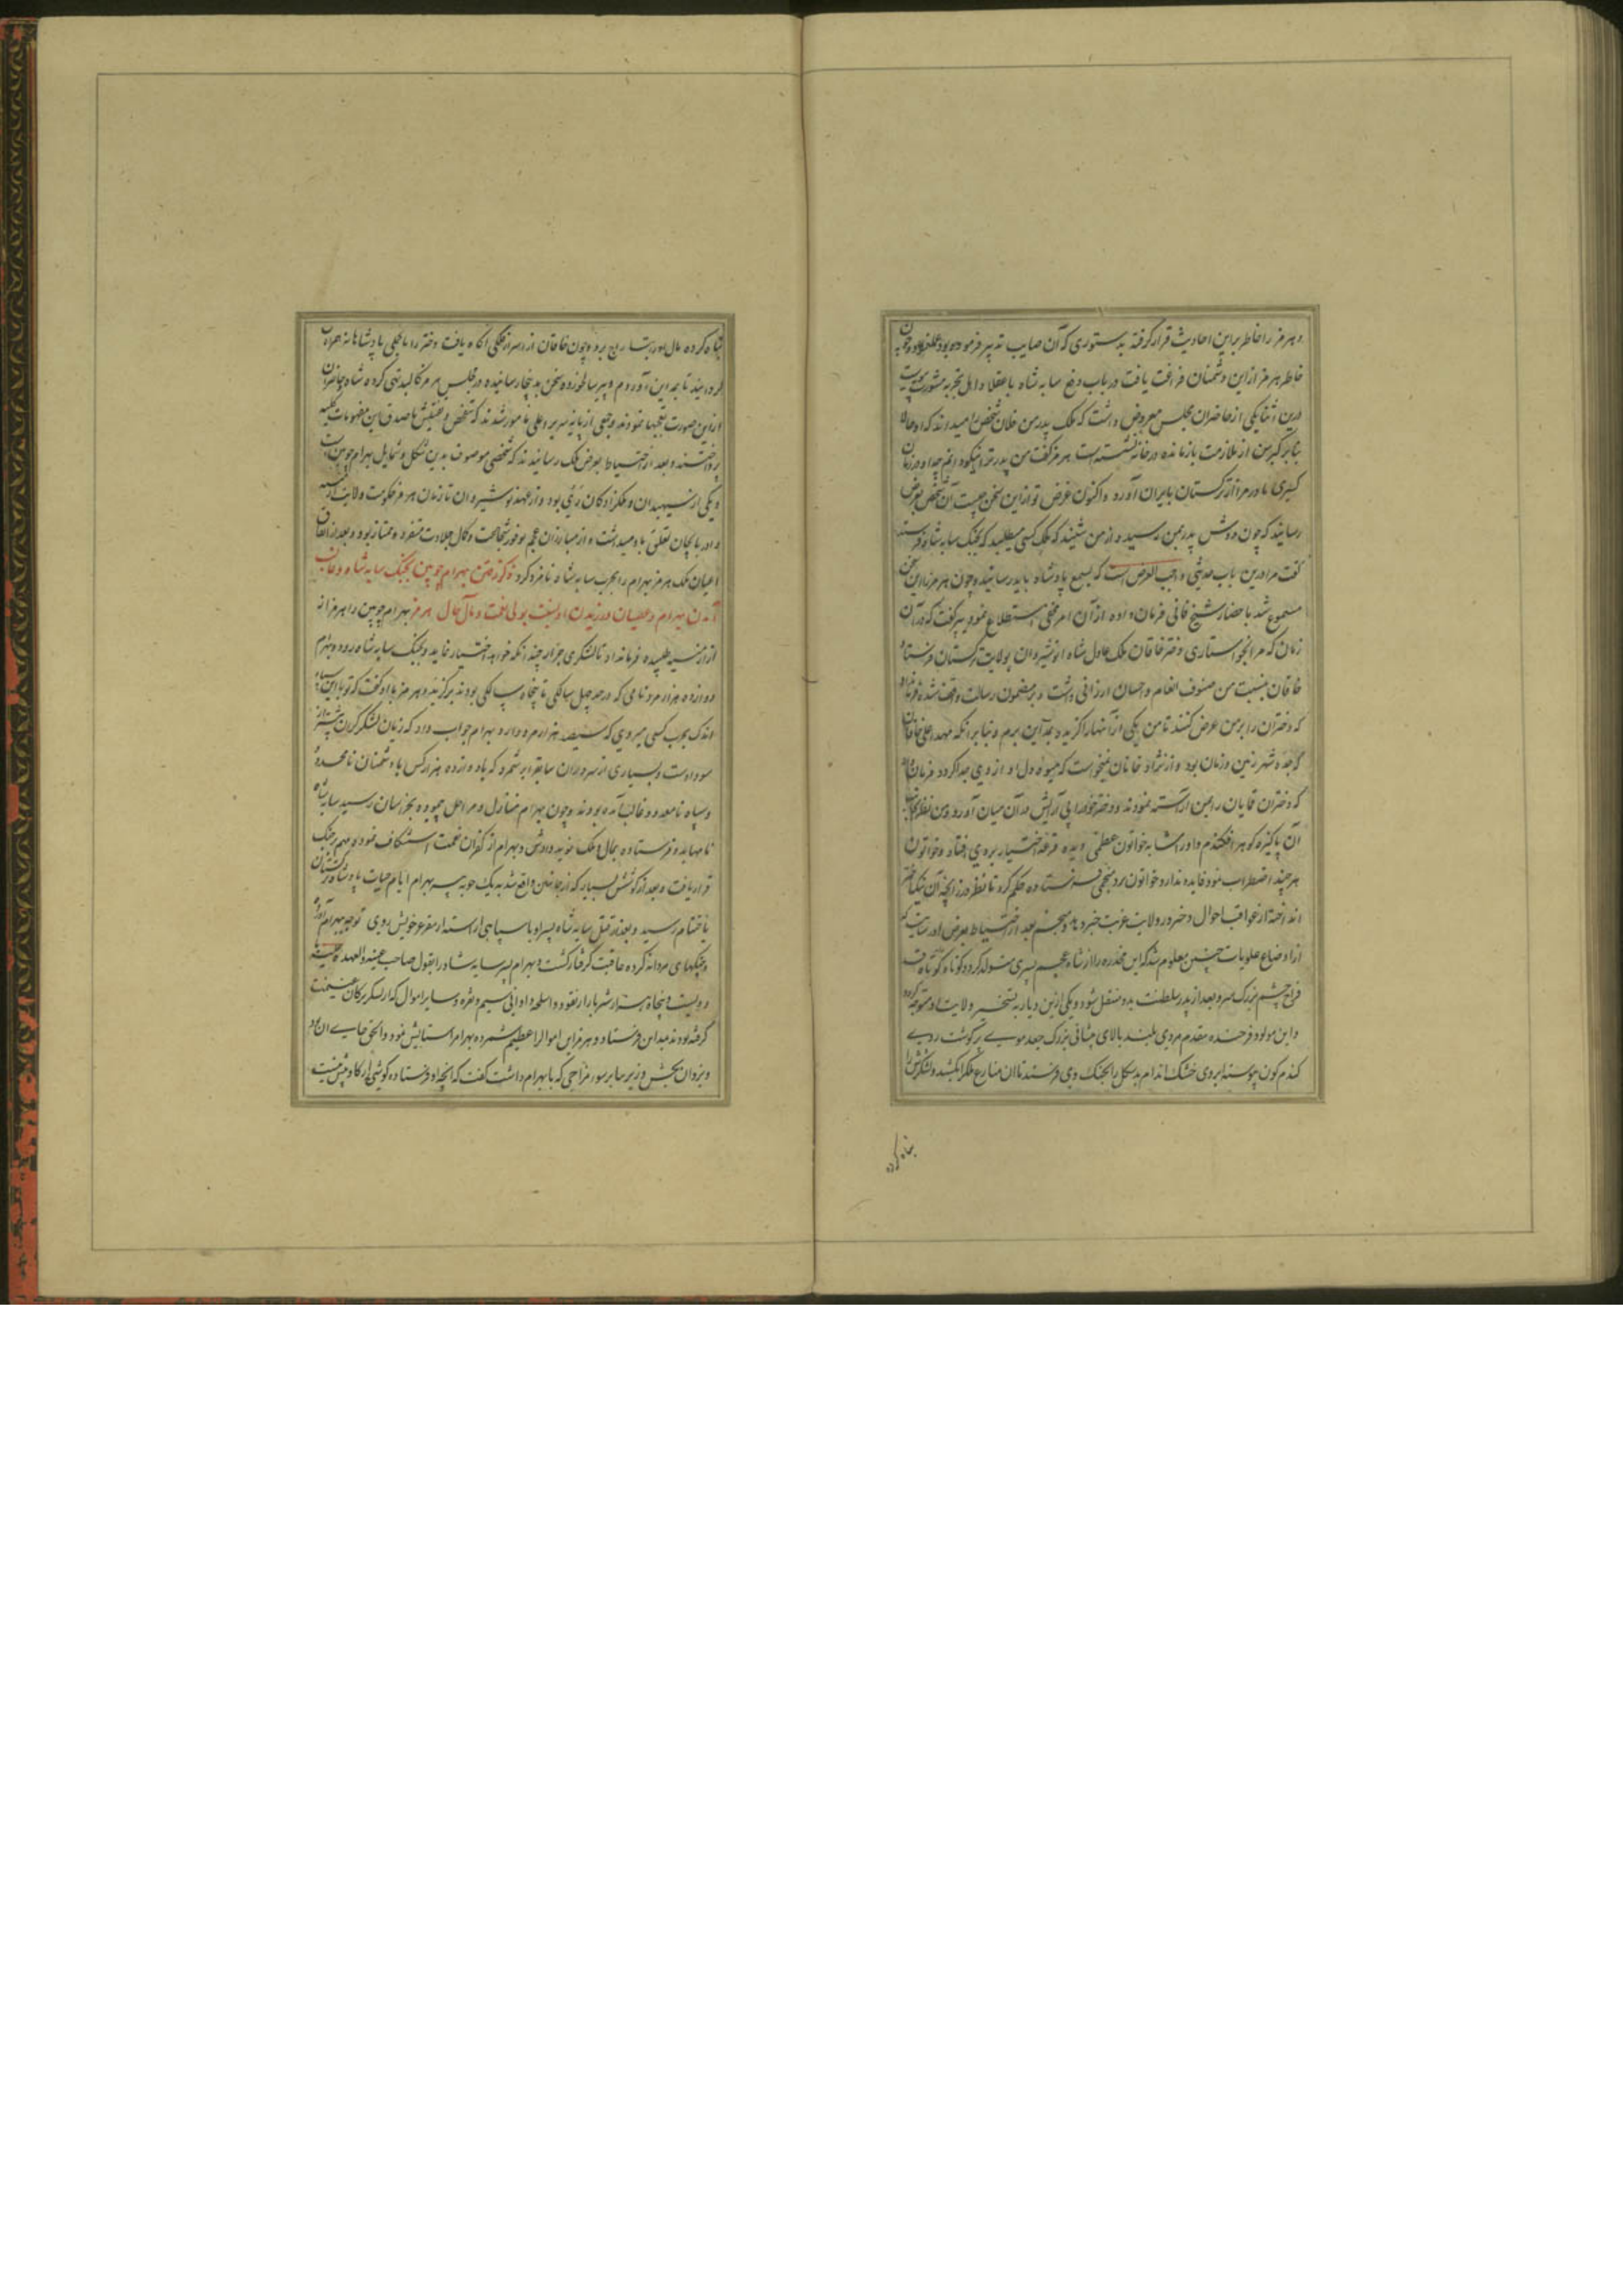 و هرمز را خاطر براین احادیث قرار گرفته بدستوری که آن صایب تدبیر فرموده بود عمل نمود و چون
خاطر هرمز ازین دشمنان فراغت یافت در باب دفع سابه شاه با عقلا و اهل تجربه مشورت پیوست
درین اثنا یکی از حاضران مجلس معروض داشت که ملک پدر من فلان شخص را میداند که او حالا
بنابر کبر سن از ملازمت باز مانده در خانه نشسته است هرمز گفت من پدر ترا نیکو دانم چه او در زمان
کسری مادر مرا از ترکستان بایران آورد و اکنون غرض تو ازین سخن چیست آن شخص بعرض
رسانید که چون دوش پدر بمن رسیده از من شنید که ملک کسی میطلبد که بجنگ سابه شاه فرستد
گفت مرا درین باب حدیثی واجب العرض است که بسمع پادشاه باید رسانید و چون هرمز را این سخن
مسموع شد باحضار شیخ فانی فرمان داده از آن امر مخفی استطلاع نمود پیر گفت که در آن
زمان که مرا بخواستاری دختر خاقان ملک عادل شاه انوشیروان بولایت ترکستان فرستاد
خاقان بنسبت من صنوف انعام و احسان ارزانی داشت و بر مضمون رسالت واقف شده فرمان داد
که دختران را بر من عرض کنند تا من یکی از آنها را گزیده بمداین برم و بنابر آنکه مهد اعلی خاقان
که جده شهر زمین و زمان بود و از نژاد خانان نمیخواست که میوه دل او از وی جدا گردد فرمان داد
که دختران قمایان را بمن آراسته نمودند و دختر خود را بی آرایش در آن میان آورد و من نظر بجانب
آن پاکیزه گوهر افکندم و او را مشابه خواتون عظمی دیده قرعه اختیار بروی افتاد و خواتون
هر چند اضطراب نمود فایده نداد و خواتون نزد منجمی فرستاده حکم کرد تا نظر در زایچه آن نیک اختر
انداخته از عواقب احوال دختر در ولایت غربت خبر دهد و منجم بعد از احتیاط بعرض او رسانید که
از اوضاع علویات چنین معلوم شد که این مخدره را از شاه عجم پسری متولد گردد کوتاه قامت
فراخ چشم بزرگ سر و بعد از پدر سلطنت بدو منتقل شود و یکی ازین دیار به تسخیر ولایت او متوجه گردد
و این مولود فرخنده مقدم مردی بلند بالای پیشانی بزرگ جعد موی پر گوشت روی
گندم گون پیوسته ابروی خشک اندام بد شکل را بجنگ وی فرستد تا آن منازع ملک را بکشد و لشکرش را
تباه کرده
تباه کرده مال او را بتاراج برد و چون خاقان از اسرار فلکی آگاه یافت دختر را با تجملی پادشاهانه همراه
گردانید تا بمداین آوردم و پیر سالخورده سخن بدینجا رسانیده در مجلس هرمز کالبد تهی کرده شاه و حاضران
ازین صورت تعجبها نمودند و جمعی از پایه سریر اعلی مامور شدند که بتفحص و تفتیش ماصدق این مفهومات کلیه
پرداختند و بعد از احتیاط بعرض ملک رسانیدند که شخصی موصوف بدین شکل و شمایل بهرام چوبین است
و یکی از سپهبدان و ملکزادگان ری بود و از عهد نوشیروان تا زمان هرمز حکومت ولایت ارمنیه
و اذربایجان تعلق باو میداشت و از مبارزان عجم بوفور شجاعت و کمال جلادت متفرد و ممتاز بود و بعد از اتفاق
اعیان ملک هرمز بهرام را بحرب سابه شاه نامزد کرد ذکر رفتن بهرام چوبین بجنگ سابه شاه و غالب
آمدن بهرام و عصیان ورزیدن او بنسبت بولی نعمت و مآل حال هرمز بهرام چوبین را هرمز از
ارمنیه طلبیده فرمانداد تا لشکری جرار چندانکه خواهد اختیار نماید و بجنگ سابه شاه رود و بهرام
دوازده هزار مرد نامی که در حد چهل سالگی تا پنجاه سالگی بودند برگزید و هرمز با او گفت که تو با این سپاه
اندک بحرب کسی میروی که سیصد هزار مرد دارد بهرام جواب داد که زیان لشکر گران بیشتر از
سود اوست و بسیاری از سروران سابق را بر شمرد که با دوازده هزار کس با دشمنان نامحدود
و سپاه نامعدود غالب آمده بودند و چون بهرام منازل و مراحل پیموده بخراسان رسید سابه شاه
نامها بدو فرستاده بمال و ملک نوید دادش و بهرام از کفران نعمت استنکاف نموده مهم بر جنگ
قرار یافت و بعد از کوشش بسیار که از جانبین واقع شد به یک چوبه تیر بهرام ایام حیات پادشاه ترکستان
باختتام رسید و بعد از قتل سابه شاه پسر او با سپاهی آراسته از مقر عز خویش روی توجه ببهرام آورد
و جنگهای مردانه کرده عاقبت گرفتار گشت و بهرام پسر سابه شاه را بقول صاحب غنیه والعهده علیه با
دویست و پنجاه هزار شتر بار از نقود و اسلحه و اوانی سیم و نقره و سایر اموال که از لشکر ترکان غنیمت
گرفته بودند بمداین فرستاد و هرمز این اموال را عظیم شمرده بهرام را ستایش نمود و الحق جای آن بود
و یزدان بخش وزیر بنابر سوء مزاجی که با بهرام داشت گفت که آنچه او فرستاده گوشی از گاو بیش نیست